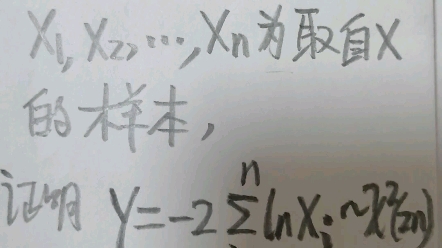 X₁, X₂, ⋯, Xn为取自X
的样本,
证明 Y=-2 Σⁿ ln Xᵢ ~ χ²(2n)